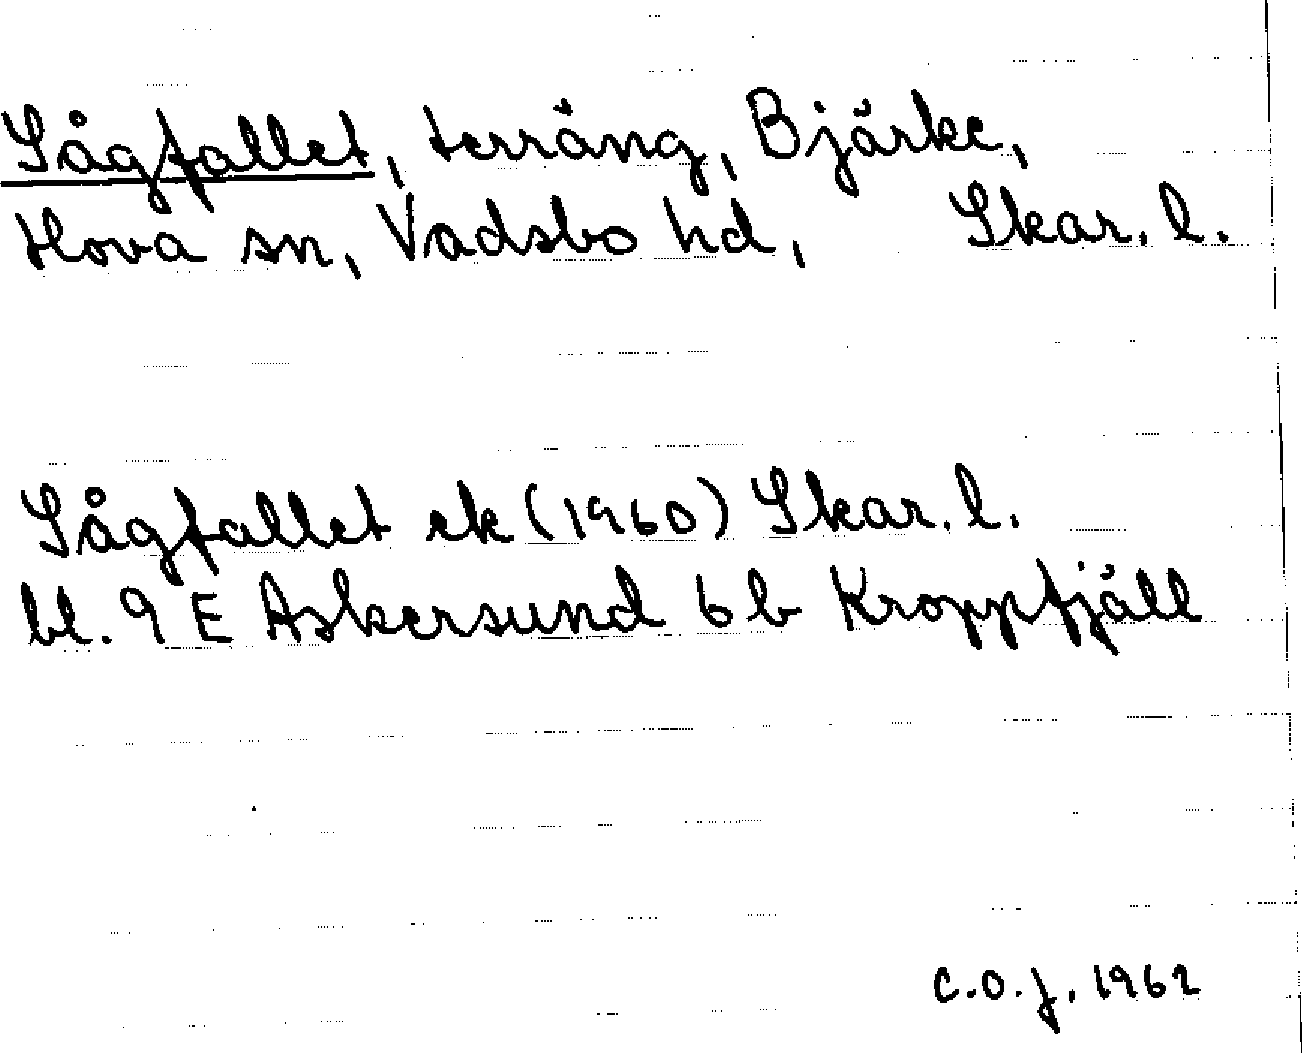 Sågfallet, terräng, Bjärke,
Hova sn, Vadsbo hd, Skar. l.
Sågfallet ek (1960) Skar. l.
bl. 9 E Askersund 6 b Kroppfjäll
C.O.J. 1962